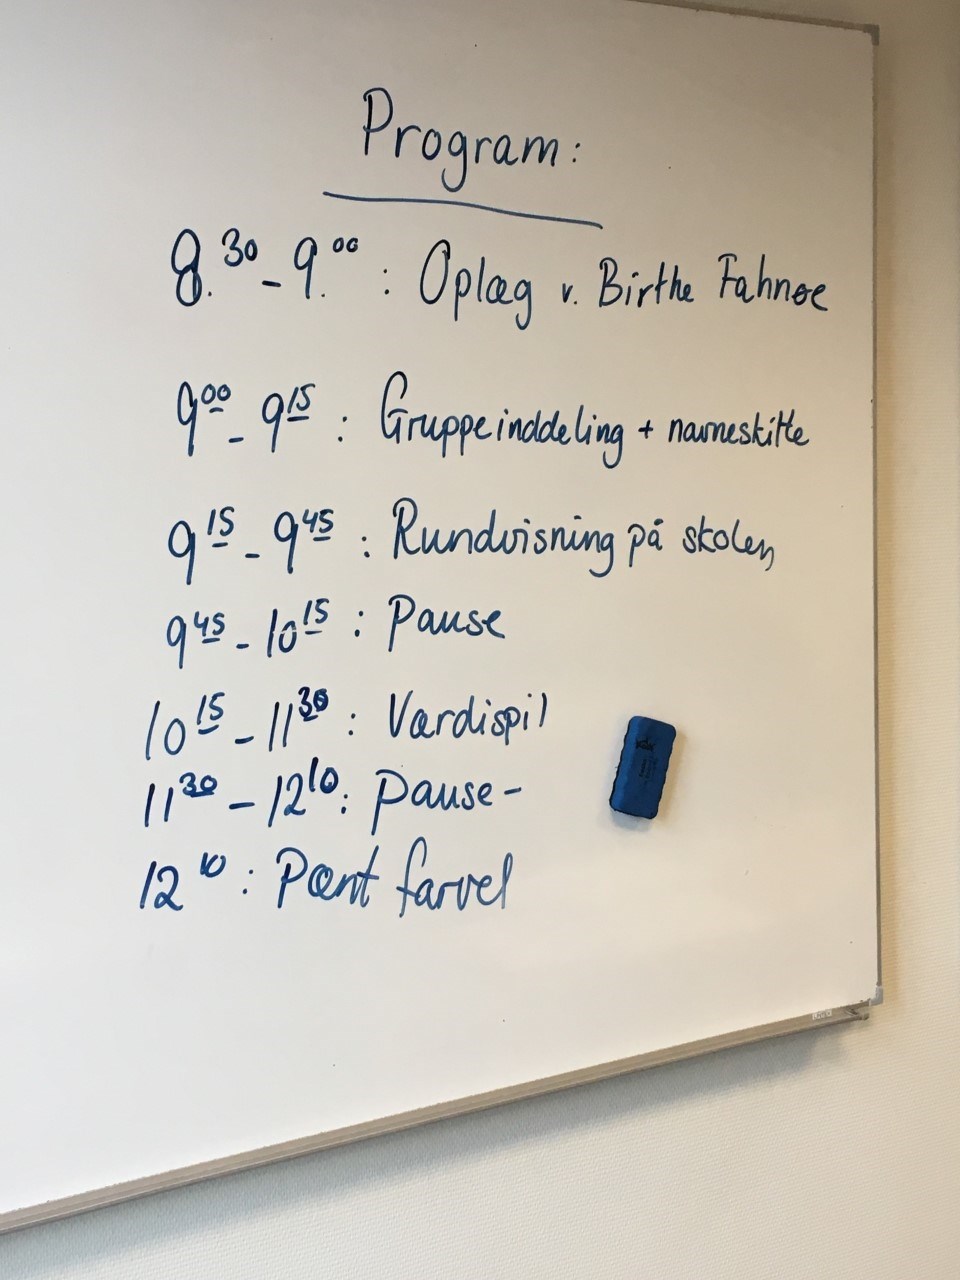 Program:
8.30 - 9.00 : Oplæg v. Birthe Fahnøe
9 00 - 9 15 : Gruppeinddeling + navneskilte
9 15 - 9 45 : Rundvisning på skolen
9 45 - 10 15 : Pause
10 15 - 11 30 : Værdispil
11 30 - 12 10 : Pause -
12 10 : Pænt farvel